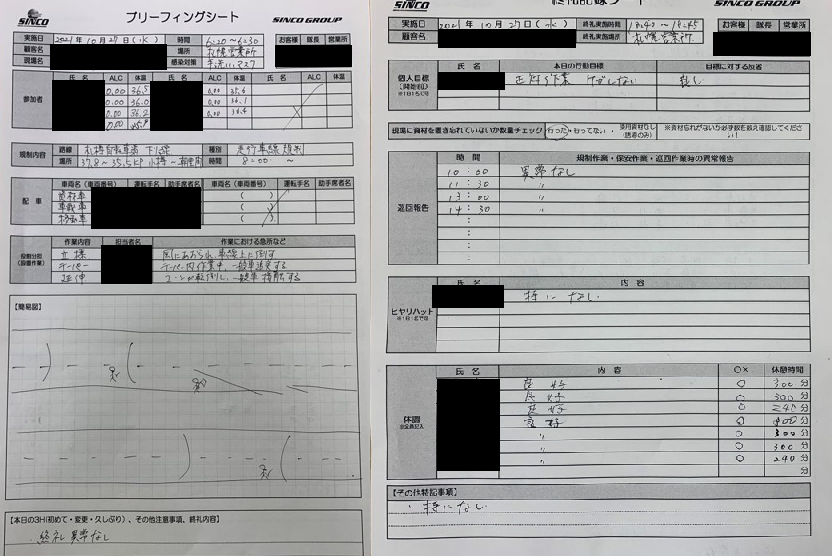 SINCO
ブリーフィングシート
SINCO GROUP
実施日 2021年10月27日(水) 時間 6:20~6:30 お客様 隊長 営業所
顧客名 場所 札幌営業所
現場名 感染対策 手洗い、マスク
参加者 氏名 ALC 体温 氏名 ALC 体温 氏名 ALC 体温
0.00 36.5 0.00 35.6
0.00 36.0 0.00 36.1
0.00 36.2 0.00 36.4
0.00
規制内容 路線 札樽自動車道 下り線 種別 走行車線規制
場所 37.8~35.5KP 小樽~朝里間 時間 8:00 ~
配車 車両名(車両番号) 運転手名 助手席者名 車両名(車両番号) 運転手名 助手席者名
資材車 ( )
車載車 ( )
標識車 ( )
役割分担(設置作業) 作業内容 担当者名 作業における急所など
立標 風にあおられ、車線上に倒す
テーパー テーパー内作業中、一般車進入する
延伸 コーンが転倒し、一般車接触する
【簡易図】
【本日の3H(初めて・変更・久しぶり)、その他注意事項、終礼内容】
・終礼 異常なし
SINCO
SINCO GROUP
実施日 2021年10月27日(水) 終礼実施時間 ~ お客様 隊長 営業所
顧客名 終礼実施場所 札幌営業所
個人目標 氏名 本日の行動目標 目標に対する反省
現場に資材を置き忘れていないか数量チェック 行った・行ってない・
時間 規制作業・保安作業・巡回作業時の異常報告
巡回報告
10:00 異常なし
11:30 〃
13:00 〃
14:30 〃
氏名 内容
ヒヤリハット 特になし
氏名 内容 ○× 休憩時間
体調
良好 ○ 300分
良好 ○ 300分
良好 ○ 240分
良好 ○ 分
〃 ○ 300分
〃 ○ 300分
〃 ○ 240分
分
【その他特記事項】
・特になし